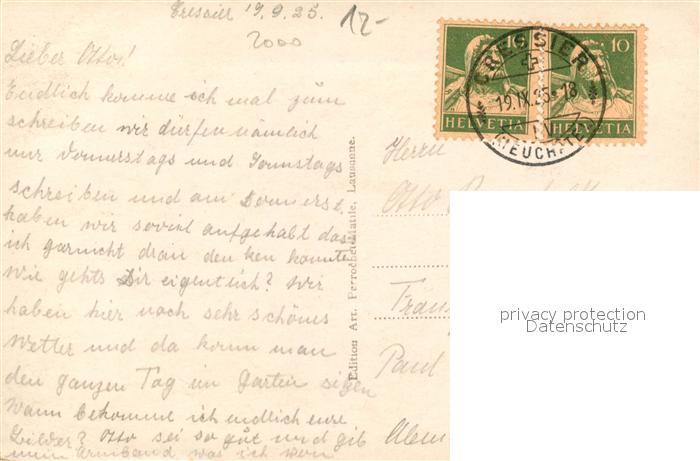 Cressier 19.9.25.
12-
2000
Lieber Otto!
Endlich komme ich mal zum
schreiben wir dürfen nämlich
nur Donnerstags und Sonntags
schreiben und am Donnerst.
haben wir soviel aufgehabt das
ich garnicht dran den ken konnte
Wie gehts Dir eigentlich? Wir
haben hier noch sehr schönes
Wetter und da kann man
den ganzen Tag im Garten sizen
Wann bekomme ich endlich eure
Bilder? Otto sei so gut und gib
mein Armband was ich
Edition Art. Perrochet-Matile, Lausanne.
10
10
HELVETIA
HELVETIA
CRESSIER
19.IX.25.-18
(NEUCHATEL)
Herrn
Otto
Paul
privacy protection
Datenschutz